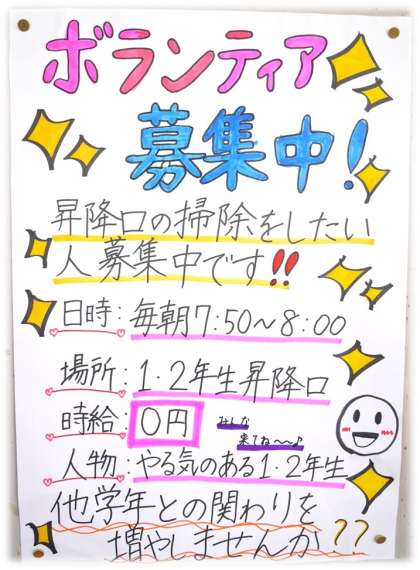 ボランティア
募集中!
昇降口の掃除をしたい
人募集中です!!
日時:毎朝7:50~8:00
場所:1・2年生昇降口
時給:0円
みんな
来てね~~♪
人物:やる気のある1・2年生
他学年との関わりを
増やしませんか??